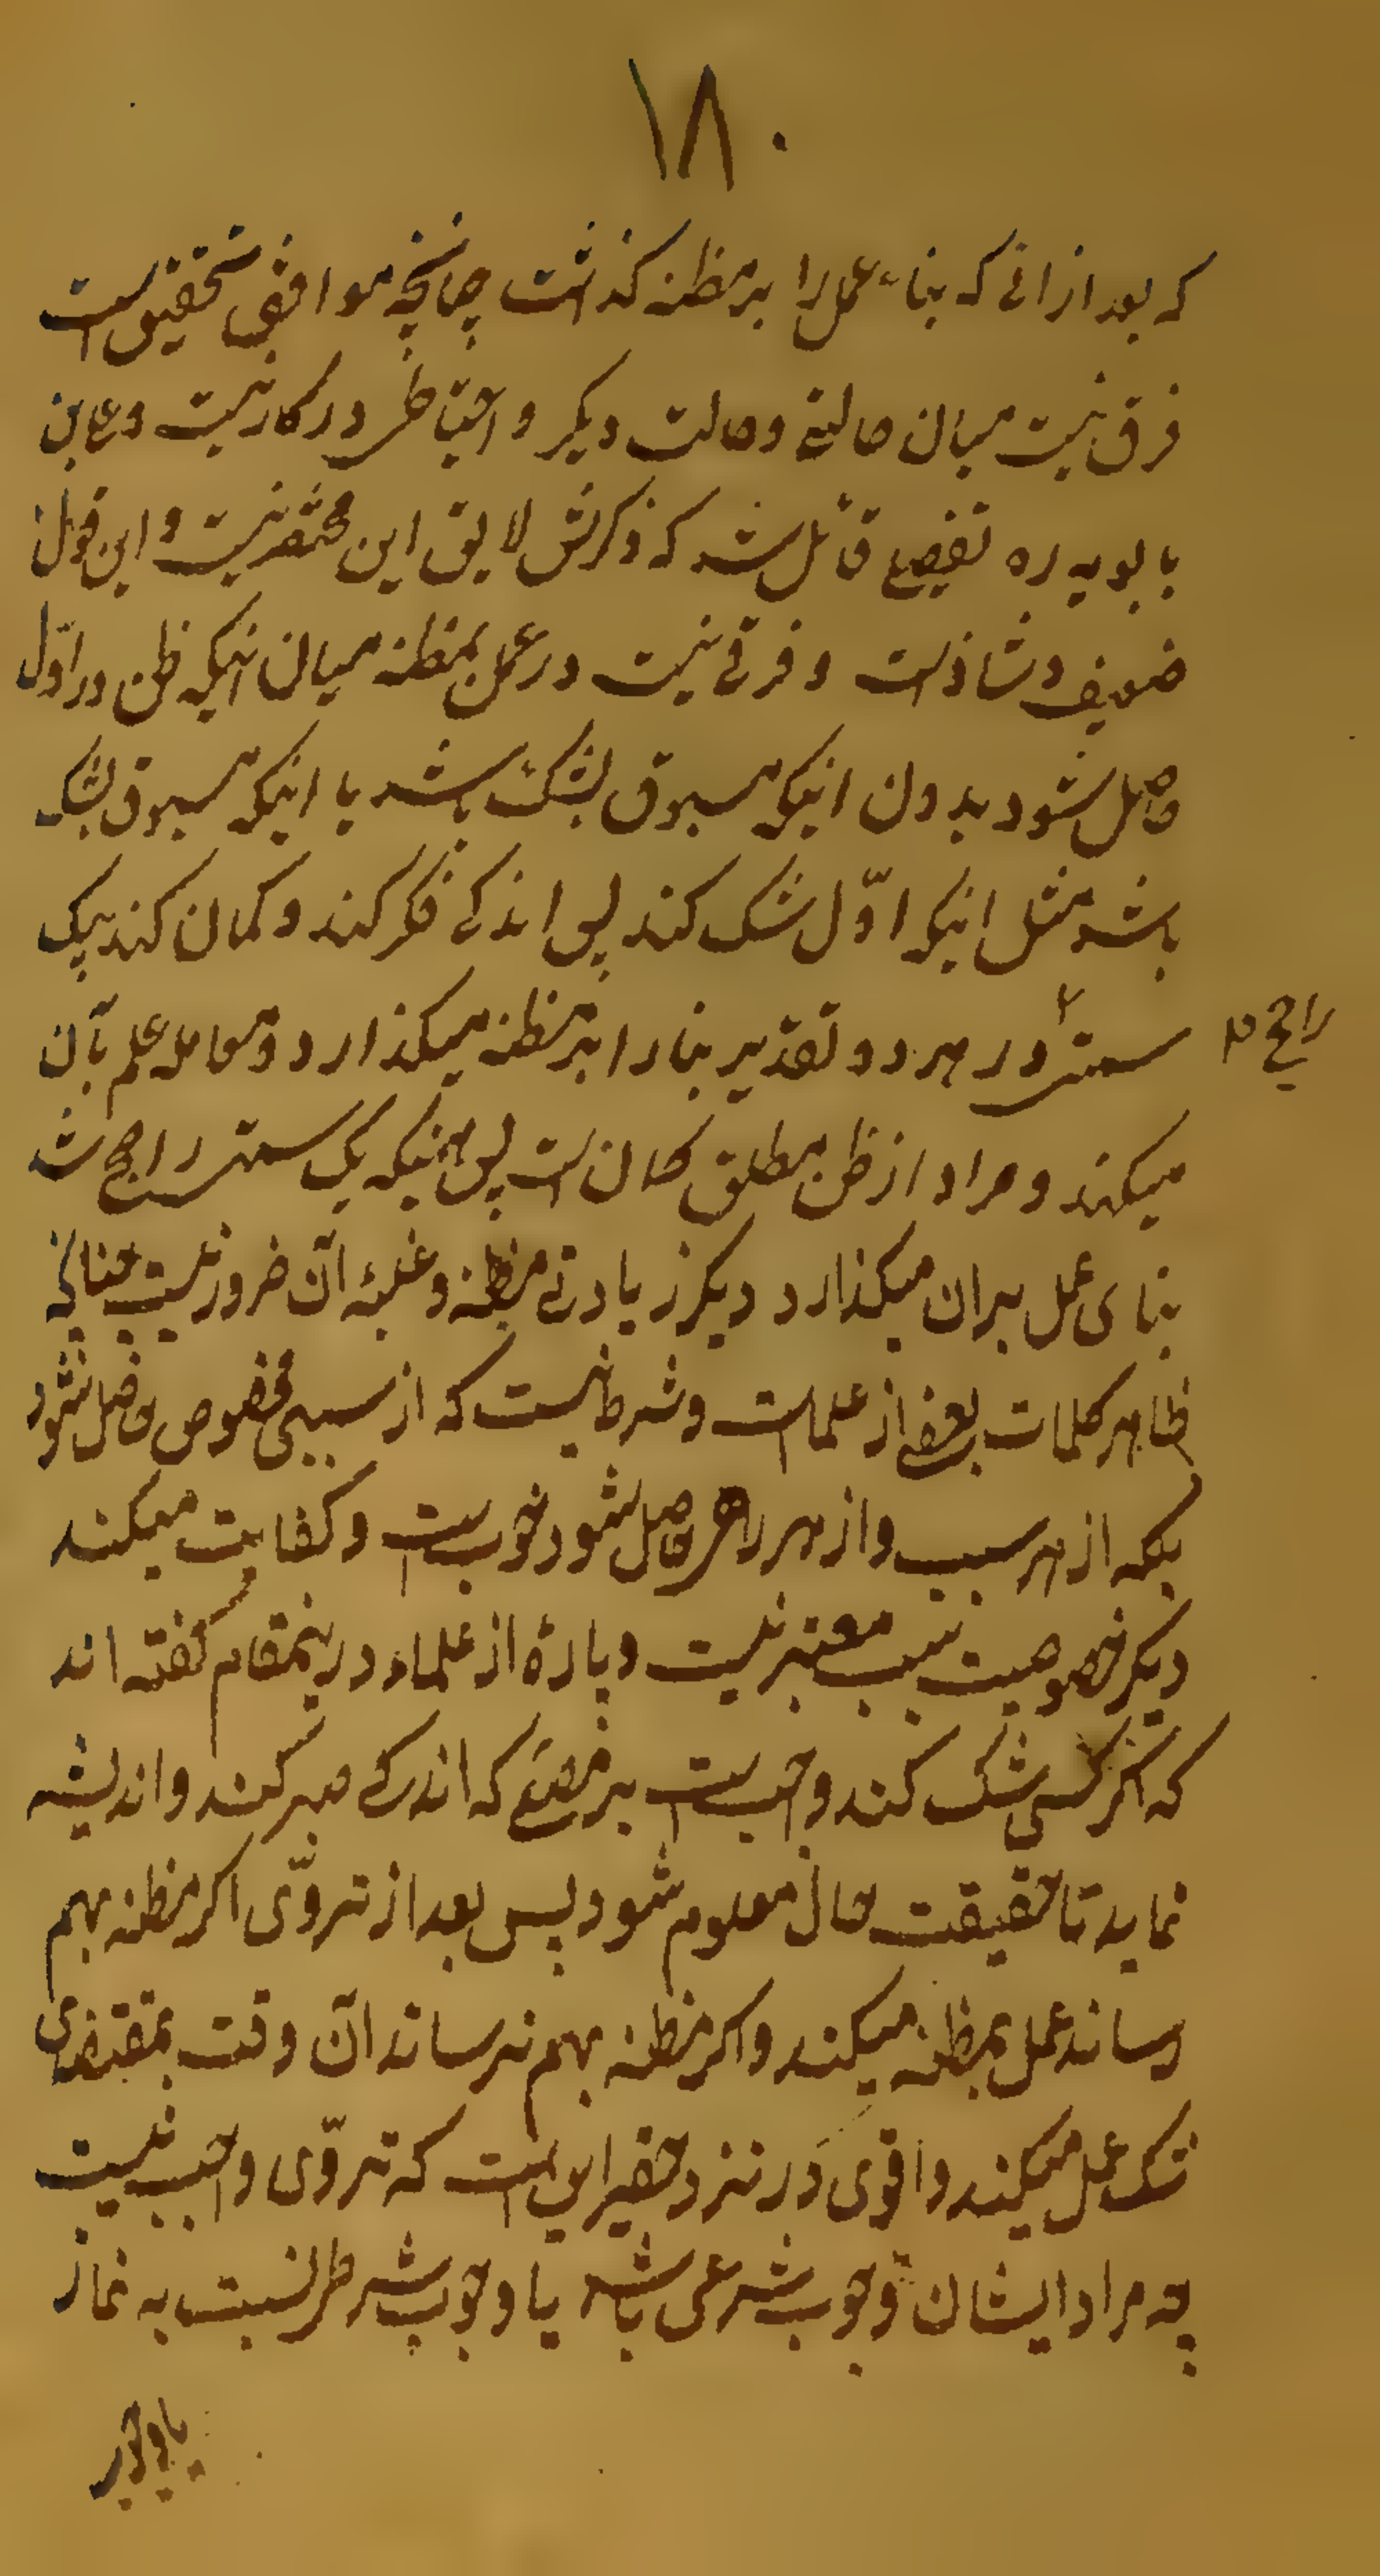 ۱۸۰
که بعد از انی که بناء عمل را بر مظنه کذاشت چنانچه موافق تحقیق است
فرق نیست میان حالتی و حالت دیکر و احتیاطی در کار نیست و علی بن
بابویه ره تفصیلی قائل شده که ذکرش لایق این مختصر نیست و این قول
ضعیف و شاذ است و فرقی نیست در عمل بمظنه میان اینکه ظن در اوّل
حاصل شود بدون اینکه مسبوق بشک باشد یا اینکه مسبوق بشک
باشد مثل اینکه اوّل شک کند پس اندکی فکر کند و کمان کند بیک
سمتی در هر دو تقدیر بنا را بر مظنه میکذارد و معامله علم بآن
راجح
میکند و مراد از ظن مطلق کمان است پس همینکه یک سمتی راجح شد
بنای عمل بران میکذارد دیکر زیادتی مظنه و غلبۀ آن ضرور نیست چنانکه
ظاهر کلمات بعضی از علما است و شرط نیست که از سببی مخصوص حاصل شود
بلکه از هر سبب و از هر راهی حاصل شود خوب است و کفایت میکند
دیکر خصوصیت سبب معتبر نیست و پارۀ از علماء درینمقام کفته اند
که اکر کسی شک کند واجب است بر مصلّی که اندکی صبر کند و اندیشه
نماید تا حقیقت حال معلوم شود پس بعد از تروّی اکر مظنه بهم
رساند عمل بمظنه میکند و اکر مظنه بهم نرساند آن وقت بمقتضای
شک عمل میکند و اقوی در نزد حقیر این است که تروّی واجب نیست
چه مراد ایشان وجوب شرعی باشد یا وجوب شرطی نسبت به نماز